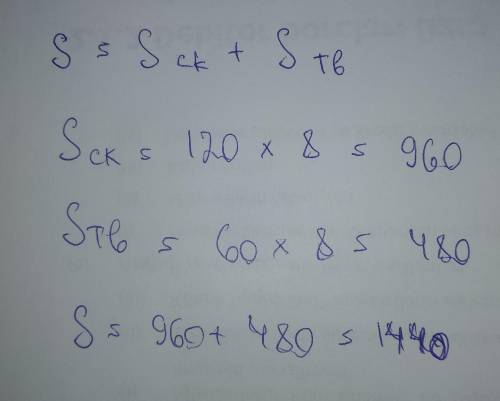 S = Sск + Sтв
Sск = 120 × 8 = 960
Sтв = 60 × 8 = 480
S = 960 + 480 = 1440